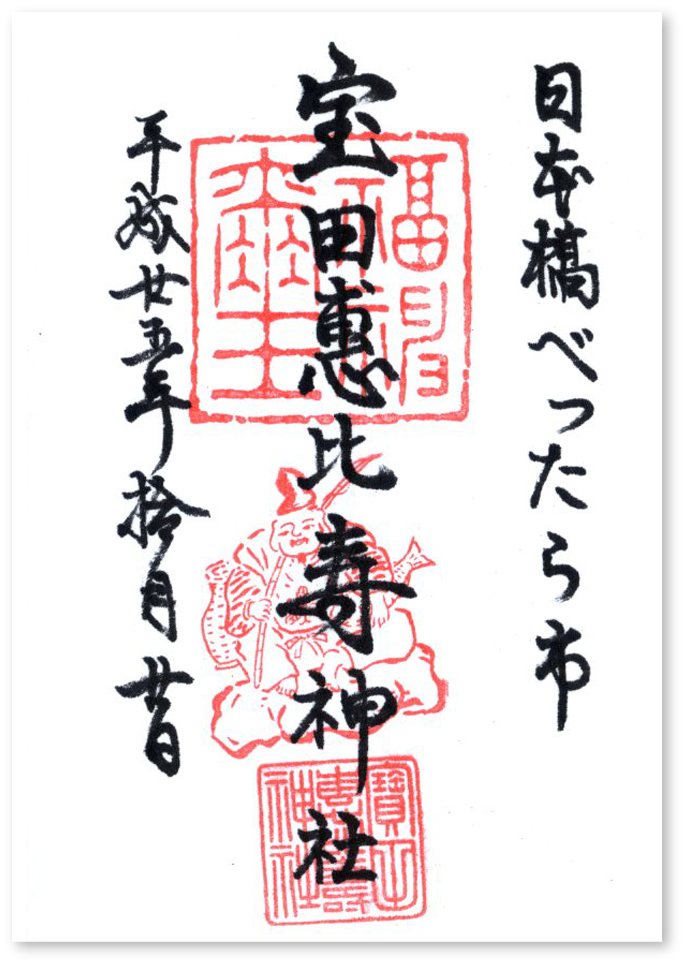 日本橋べったら市
宝田惠比寿神社
平成廿五年拾月廿日
寶田
惠比壽
神社